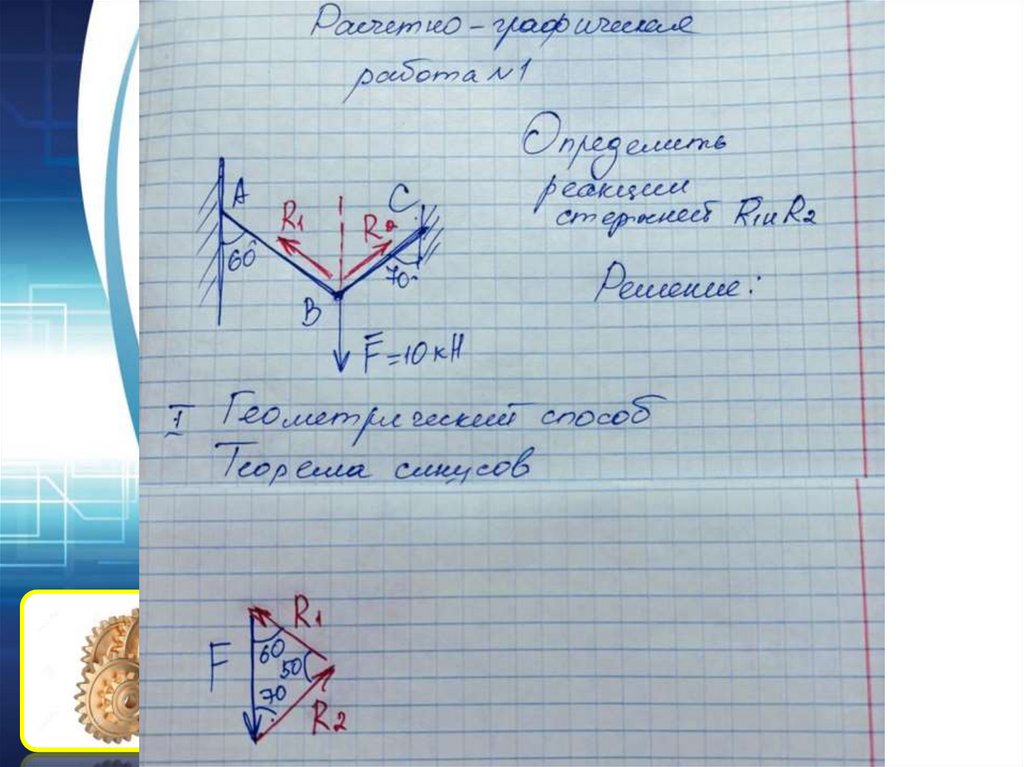 Расчетно-графическая
работа №1
Определить
реакции
стержней R1 и R2
A
C
R1
R2
60°
70°
B
F=10кН
Решение:
I Геометрический способ
Теорема синусов
R1
F
60
50
70
R2